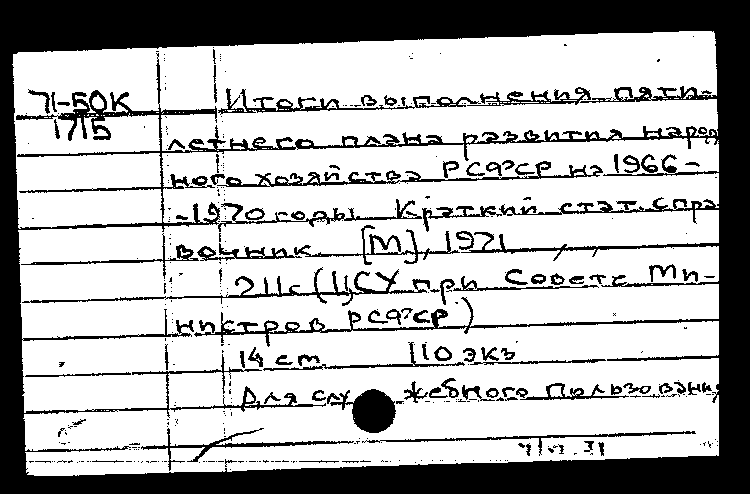 71-50К
1715
Итоги выполнения пяти-
летнего плана развития народ
ного хозяйства РСФСР на 1966-
-1970 годы. Краткий стат. спра
вочник [М], 1971
211с (ЦСУ при Совете Ми-
нистров РСФСР)
14 cm 110 экз
Для служебного пользования